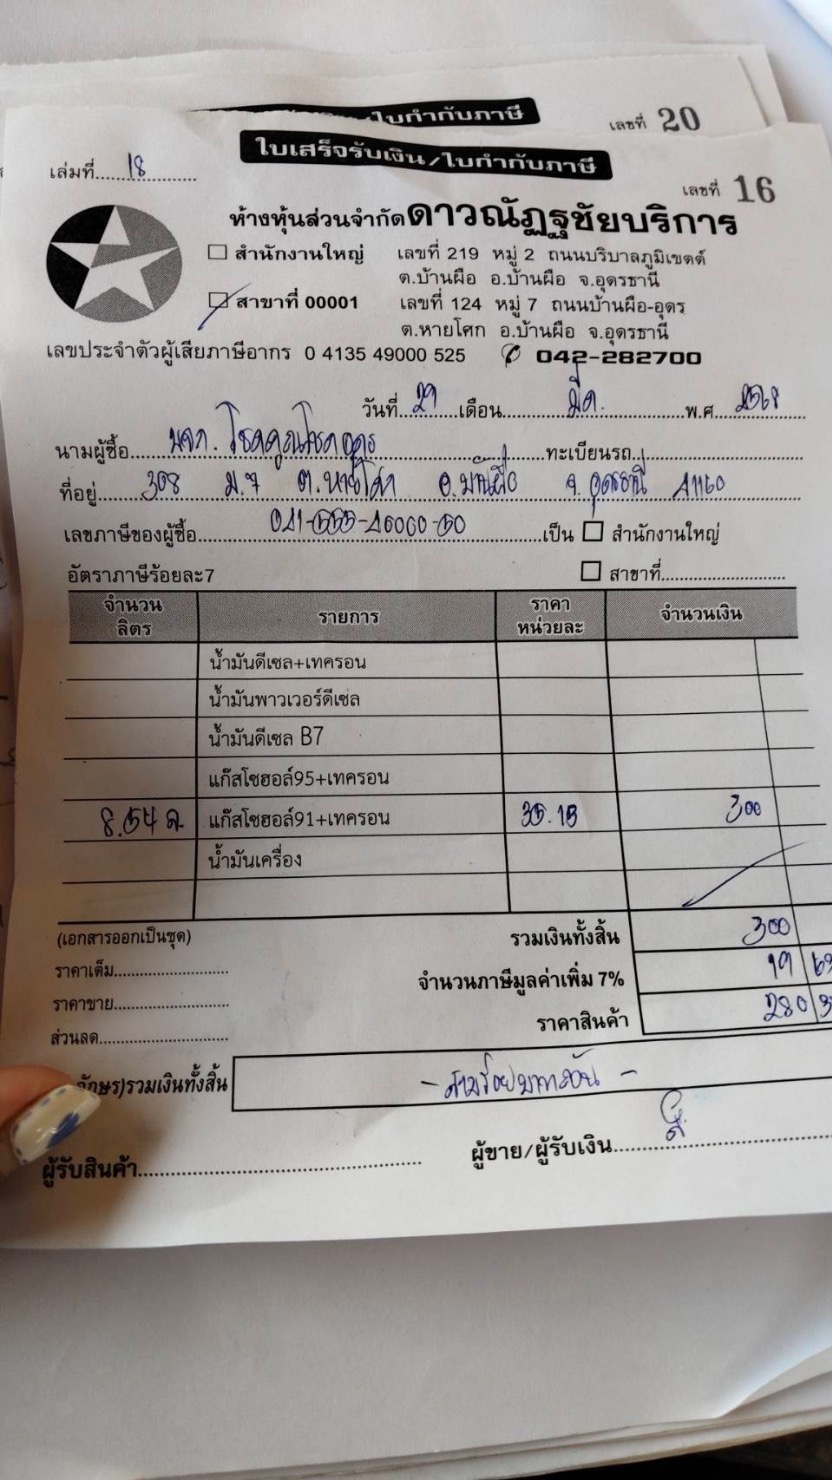 ใบกำกับภาษี
เลขที่ 20
ใบเสร็จรับเงิน/ใบกำกับภาษี
เล่มที่ 18
เลขที่ 16
ห้างหุ้นส่วนจำกัดดาวณัฏฐชัยบริการ
สำนักงานใหญ่ เลขที่ 219 หมู่ 2 ถนนบริบาลภูมิเขตต์
ต.บ้านผือ อ.บ้านผือ จ.อุดรธานี
สาขาที่ 00001 เลขที่ 124 หมู่ 7 ถนนบ้านผือ-อุดร
ต.หายโศก อ.บ้านผือ จ.อุดรธานี
เลขประจำตัวผู้เสียภาษีอากร 0 4135 49000 525 042-282700
วันที่ 29 เดือน มีค. พ.ศ 2568
นามผู้ซื้อ หจก. โชคคูณโชคอุดร ทะเบียนรถ
ที่อยู่ 308 ม.7 ต.หายโศก อ.บ้านผือ จ.อุดรธานี 41160
เลขภาษีของผู้ซื้อ เป็น สำนักงานใหญ่
อัตราภาษีร้อยละ7 สาขาที่
จำนวนลิตร รายการ ราคาหน่วยละ จำนวนเงิน
น้ำมันดีเซล+เทครอน
น้ำมันพาวเวอร์ดีเซล
น้ำมันดีเซล B7
แก๊สโซฮอล์95+เทครอน
8.54 ล. แก๊สโซฮอล์91+เทครอน 35.15 300
น้ำมันเครื่อง
(เอกสารออกเป็นชุด) รวมเงินทั้งสิ้น 300
ราคาเต็ม จำนวนภาษีมูลค่าเพิ่ม 7% 19 63
ราคาขาย ราคาสินค้า 280
ส่วนลด
อักษร)รวมเงินทั้งสิ้น - สามร้อยบาทถ้วน -
ผู้รับสินค้า ผู้ขาย/ผู้รับเงิน